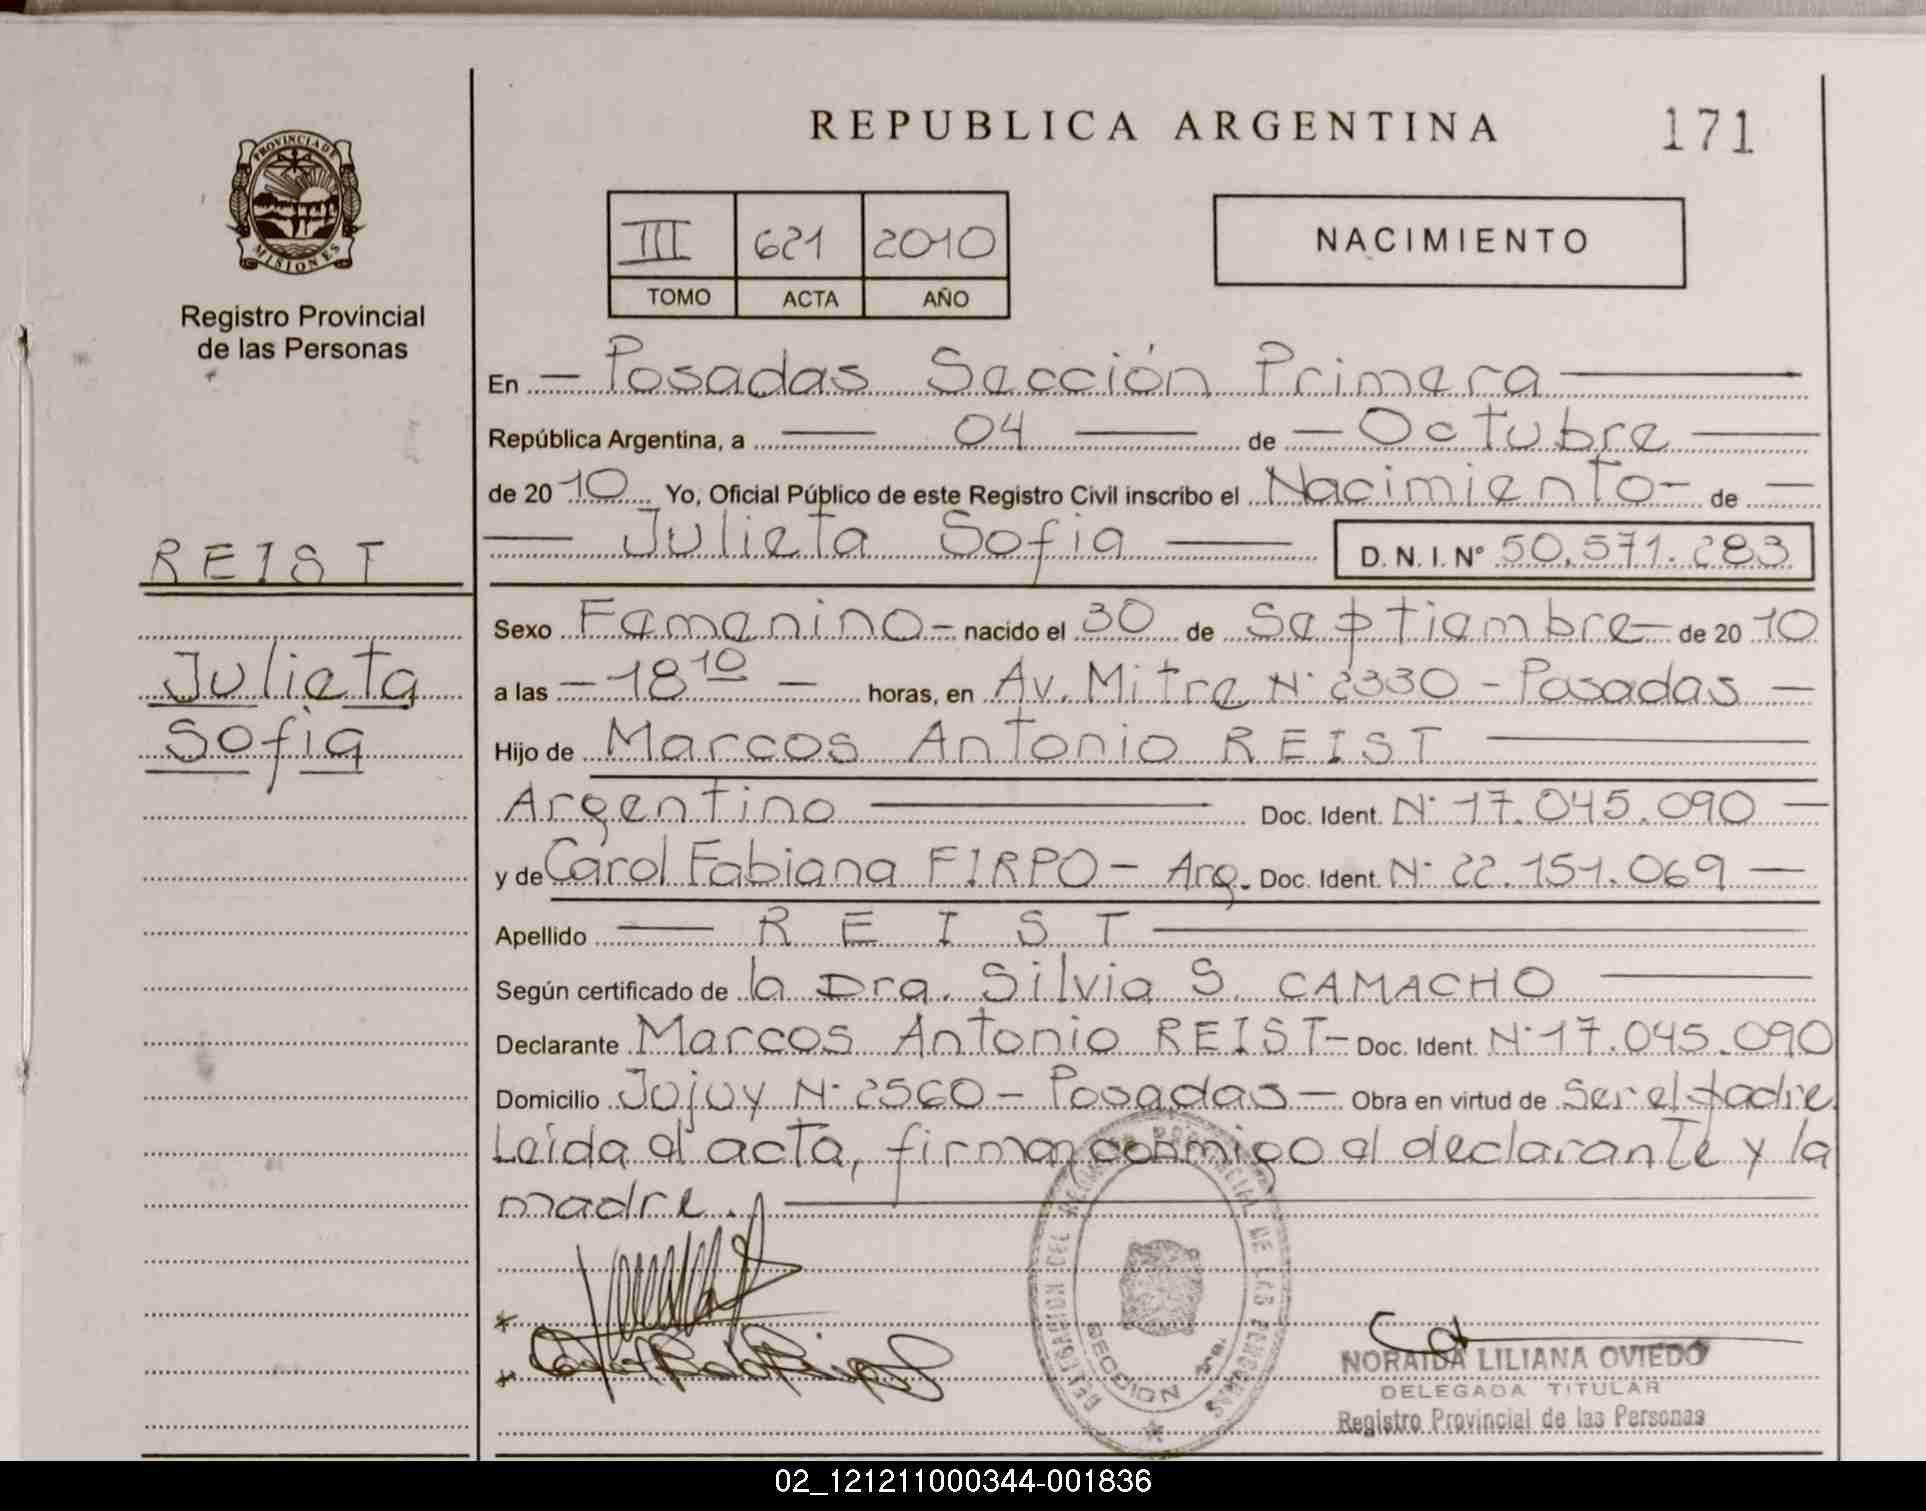 REPUBLICA ARGENTINA
171
PROVINCIA DE
MISIONES
Registro Provincial
de las Personas
III 621 2010
TOMO ACTA AÑO
NACIMIENTO
En - Posadas Sección Primera
República Argentina, a 04 de - Octubre
de 20 10 Yo, Oficial Público de este Registro Civil inscribo el Nacimiento - de
Julieta Sofia D.N.I. Nº 50.571.283
REIST
Julieta
Sofia
Sexo Femenino - nacido el 30 de Septiembre - de 20 10
a las - 18 10 - horas, en Av. Mitre Nº 2330 - Posadas -
Hijo de Marcos Antonio REIST
Argentino Doc. Ident. Nº 17.045.090
y de Carol Fabiana FIRPO - Arg. Doc. Ident. Nº 22.151.069
Apellido REIST
Según certificado de la Dra. Silvia S. CAMACHO
Declarante Marcos Antonio REIST - Doc. Ident. Nº 17.045.090
Domicilio Jujuy Nº 2560 - Posadas - Obra en virtud de ser el padre.
Leída el acta, firman conmigo el declarante y la
madre.
DELEGACION DEL REGISTRO PROVINCIAL DE LAS PERSONAS
SECCION 1ra.
NORAIDA LILIANA OVIEDO
DELEGADA TITULAR
Registro Provincial de las Personas
02_121211000344-001836